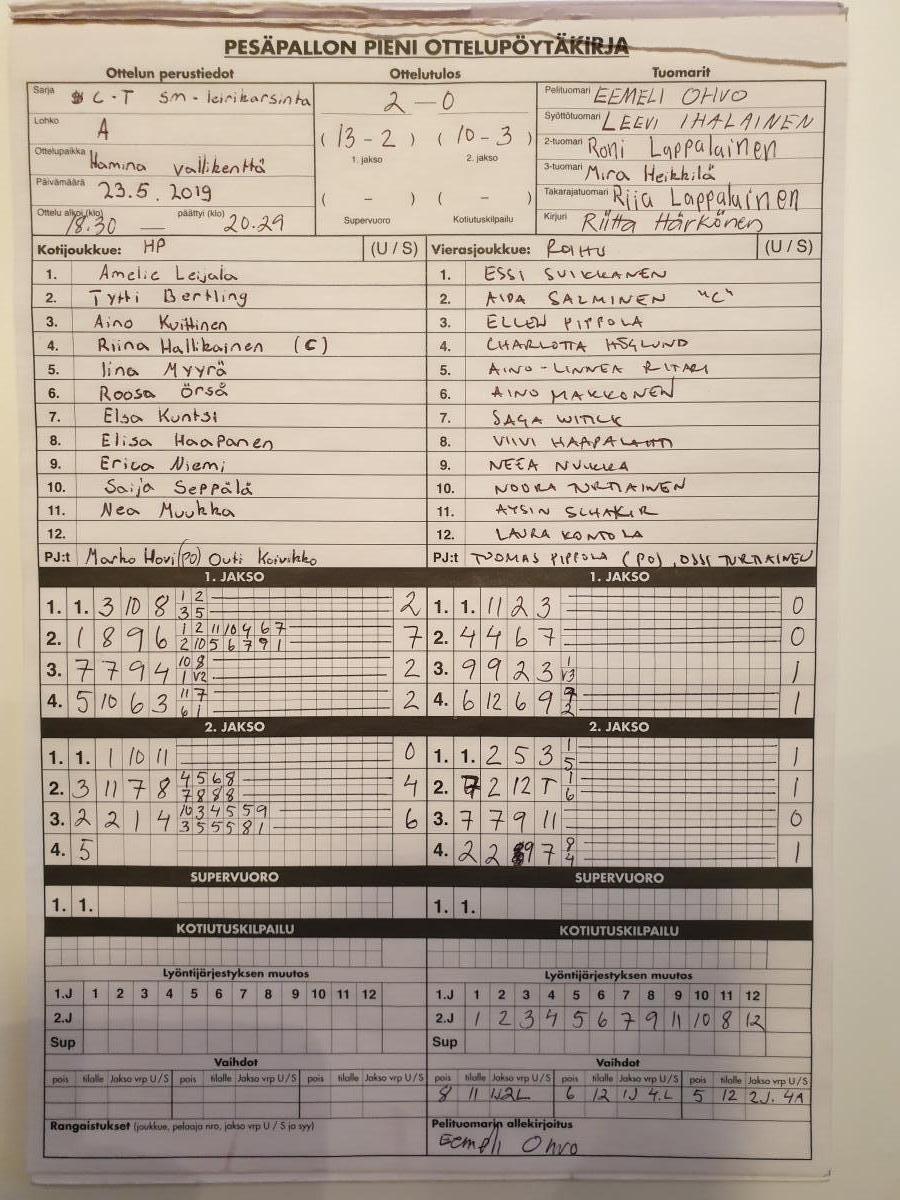 PESÄPALLON PIENI OTTELUPÖYTÄKIRJA
Ottelun perustiedot Ottelutulos Tuomarit
Sarja C-T SM-leirikarsinta
Lohko A
Ottelupaikka Hamina vallikenttä
Päivämäärä 23.5.2019
Ottelu alkoi (klo) 18.30 — päättyi (klo) 20.29
2 — 0
(13 - 2) (10 - 3)
1. jakso 2. jakso
( - ) ( - )
Supervuoro Kotiutuskilpailu
Pelituomari EEMELI OHVO
Syöttötuomari LEEVI IHALAINEN
2-tuomari Roni Lappalainen
3-tuomari Mira Heikkilä
Takarajatuomari Rija Lappalainen
Kirjuri Riitta Härkönen
Kotijoukkue: HP (U / S)
1. Amelie Leijala
2. Tytti Bertling
3. Aino Kuittinen
4. Riina Hallikainen (C)
5. Iina Myyrä
6. Roosa Örså
7. Elsa Kuntsi
8. Elisa Haapanen
9. Erica Niemi
10. Saija Seppälä
11. Nea Muukka
12.
PJ:t Marko Hovi (PO) Outi Koivikko
Vierasjoukkue: ROIHU (U / S)
1. ESSI SUIKKANEN
2. AIDA SALMINEN "C"
3. ELLEN PIPPOLA
4. CHARLOTTA HÖGLUND
5. AINO-LINNEA RITARI
6. AINO MAKKONEN
7. SAGA WITICK
8. VIIVI HAAPALAHTI
9. NEEA NUIKKA
10. NOORA TURTIAINEN
11. AYSIN SCHAKIR
12. LAURA KONTOLA
PJ:t TUOMAS PIPPOLA (PO), OSSI TURTIAINEN
1. JAKSO
1. 1. 3 10 8 1 2 2
3 5
2. 1 8 9 6 1 2 11 10 4 6 7 7
2 10 5 6 7 9 1
3. 7 7 9 4 10 8 2
1 V2
4. 5 10 6 3 11 7 2
6 1
1. JAKSO
1. 1. 11 2 3 0
2. 4 4 6 7 0
3. 9 9 2 3 1 1
V3
4. 6 12 6 9 1
2
2. JAKSO
1. 1. 1 10 11 0
2. 3 11 7 8 4 5 6 8 4
7 8 8 8
3. 2 2 1 4 10 3 4 5 5 9 6
3 5 5 5 8 1
4. 5
2. JAKSO
1. 1. 2 5 3 1 1
5
2. 7 2 12 T 1 1
6
3. 7 7 9 11 0
4. 2 2 9 7 8 1
4
SUPERVUORO SUPERVUORO
1. 1. 1. 1.
KOTIUTUSKILPAILU KOTIUTUSKILPAILU
Lyöntijärjestyksen muutos
1.J 1 2 3 4 5 6 7 8 9 10 11 12
2.J
Sup
Lyöntijärjestyksen muutos
1.J 1 2 3 4 5 6 7 8 9 10 11 12
2.J 1 2 3 4 5 6 7 9 11 10 8 12
Sup
Vaihdot
pois tilalle Jakso vrp U/S pois tilalle Jakso vrp U/S pois tilalle Jakso vrp U/S
Vaihdot
pois tilalle Jakso vrp U/S pois tilalle Jakso vrp U/S pois tilalle Jakso vrp U/S
8 11 1J2L 6 12 1J 4.L 5 12 2J. 4A
Rangaistukset (joukkue, pelaaja nro, jakso vrp U / S ja syy)
Pelituomarin allekirjoitus
Eemeli Ohvo